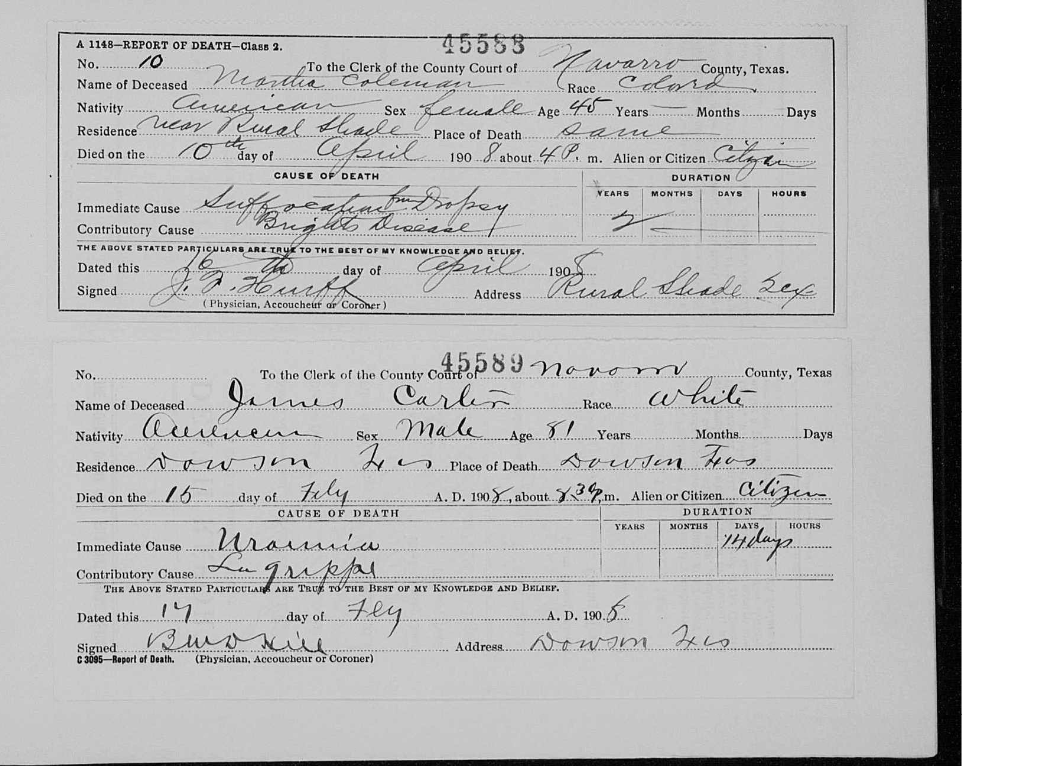 45588
A 1148—REPORT OF DEATH—Class 2.
No. 10 To the Clerk of the County Court of Navarro County, Texas.
Name of Deceased Martha Coleman Race Colord
Nativity American Sex female Age 45 Years — Months — Days
Residence near Rural Shade Place of Death same
Died on the 10th day of April 1908 about 4 P. m. Alien or Citizen Citizen
CAUSE OF DEATH DURATION
YEARS MONTHS DAYS HOURS
Immediate Cause Suffocation from Dropsy
Contributory Cause Brights Disease 2
THE ABOVE STATED PARTICULARS ARE TRUE TO THE BEST OF MY KNOWLEDGE AND BELIEF.
Dated this 16th day of April 1908
Signed J. F. Address Rural Shade Tex
(Physician, Accoucheur or Coroner)
45589
No. To the Clerk of the County Court of Navarro County, Texas
Name of Deceased James Carter Race White
Nativity American Sex Male Age 81 Years Months Days
Residence Dawson Tex Place of Death Dawson Tex
Died on the 15 day of Feby A. D. 1908, about 8 30 P. m. Alien or Citizen Citizen
CAUSE OF DEATH DURATION
YEARS MONTHS DAYS HOURS
Immediate Cause Uraemia 14 days
Contributory Cause La grippe
THE ABOVE STATED PARTICULARS ARE TRUE TO THE BEST OF MY KNOWLEDGE AND BELIEF.
Dated this 17 day of Feby A. D. 1908
Signed Hill Address Dawson Tex
C 3095—Report of Death. (Physician, Accoucheur or Coroner)